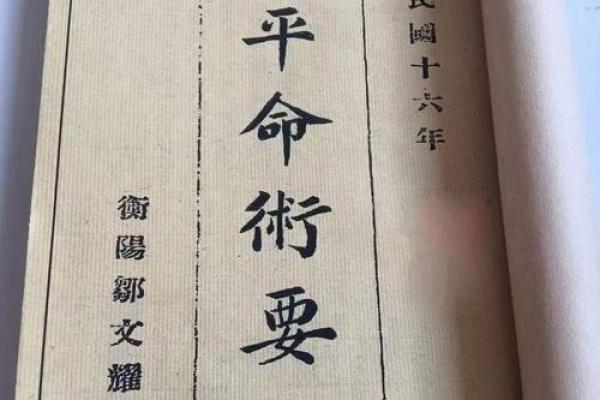 民國十六年
平命術要
衡陽鄒文耀